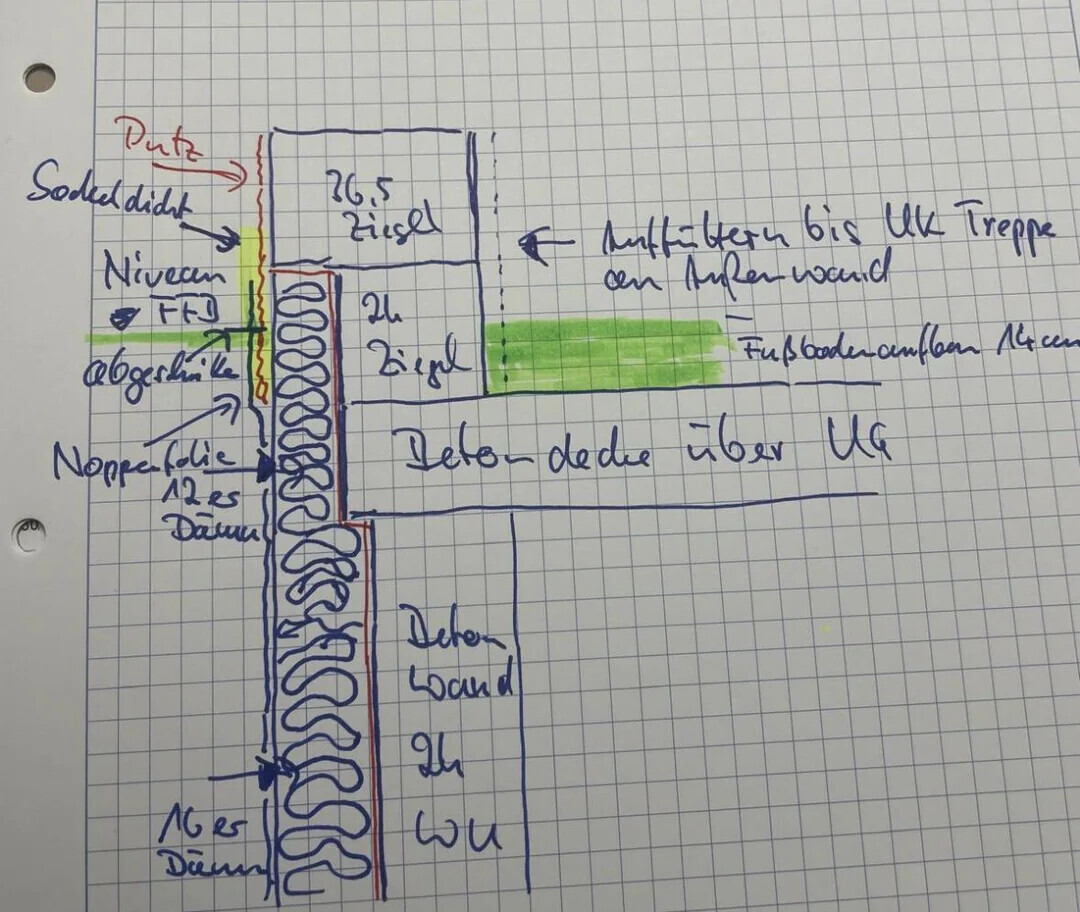 Putz
Sockeldicht
36,5
Ziegel
Auffüttern bis UK Treppe
an Außenwand
Niveau
FFB
24
Ziegel
Fußbodenaufbau 14cm
Noppenfolie
Betondecke über UG
12er
Dämm
Beton
Wand
24
WU
16er
Dämm